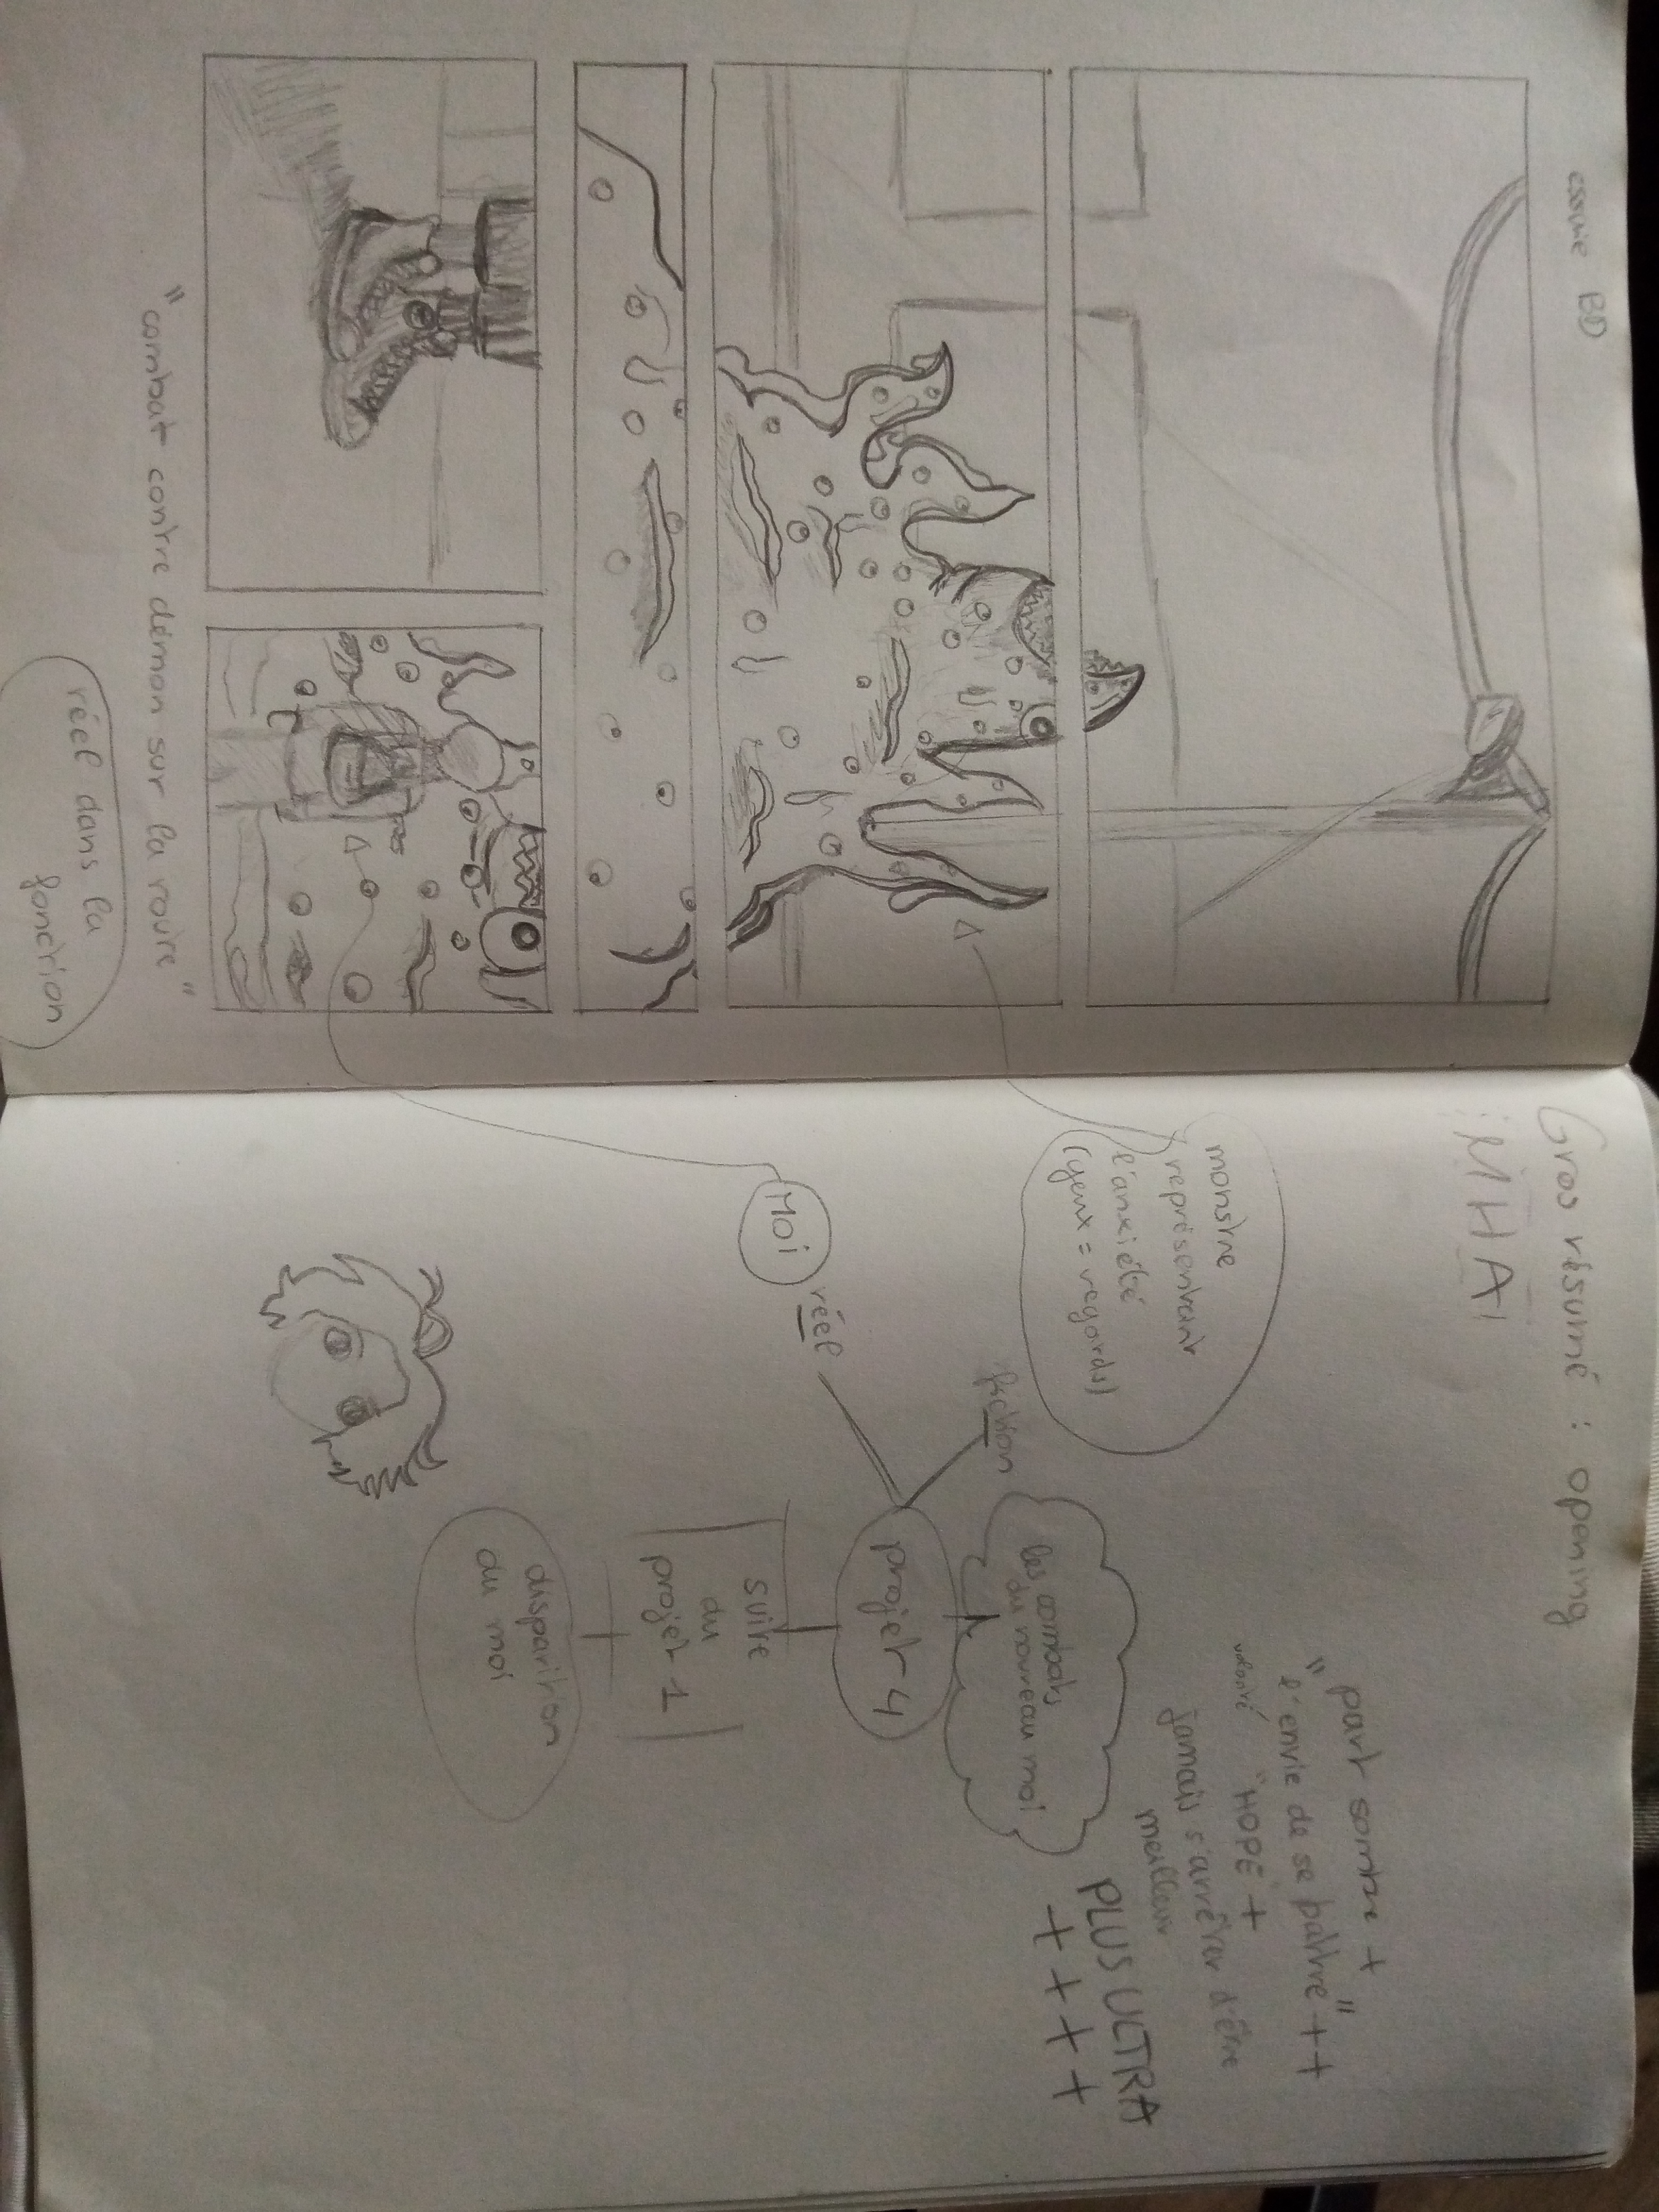 essaie BD
"combat contre démon sur la route"
réel dans la
fonction
Gros résumé : opening
MHA
part sombre +
"l'envie de se battre" ++
volonté "HOPE" +
jamais s'arrêter d'être
meilleur
PLUS ULTRA
++++
monstre
représentant
l'anxiété
(yeux = regards)
les combats
du nouveau moi
fiction
projet 4
réel
Moi
suite
du
projet 1
+
disparition
du moi